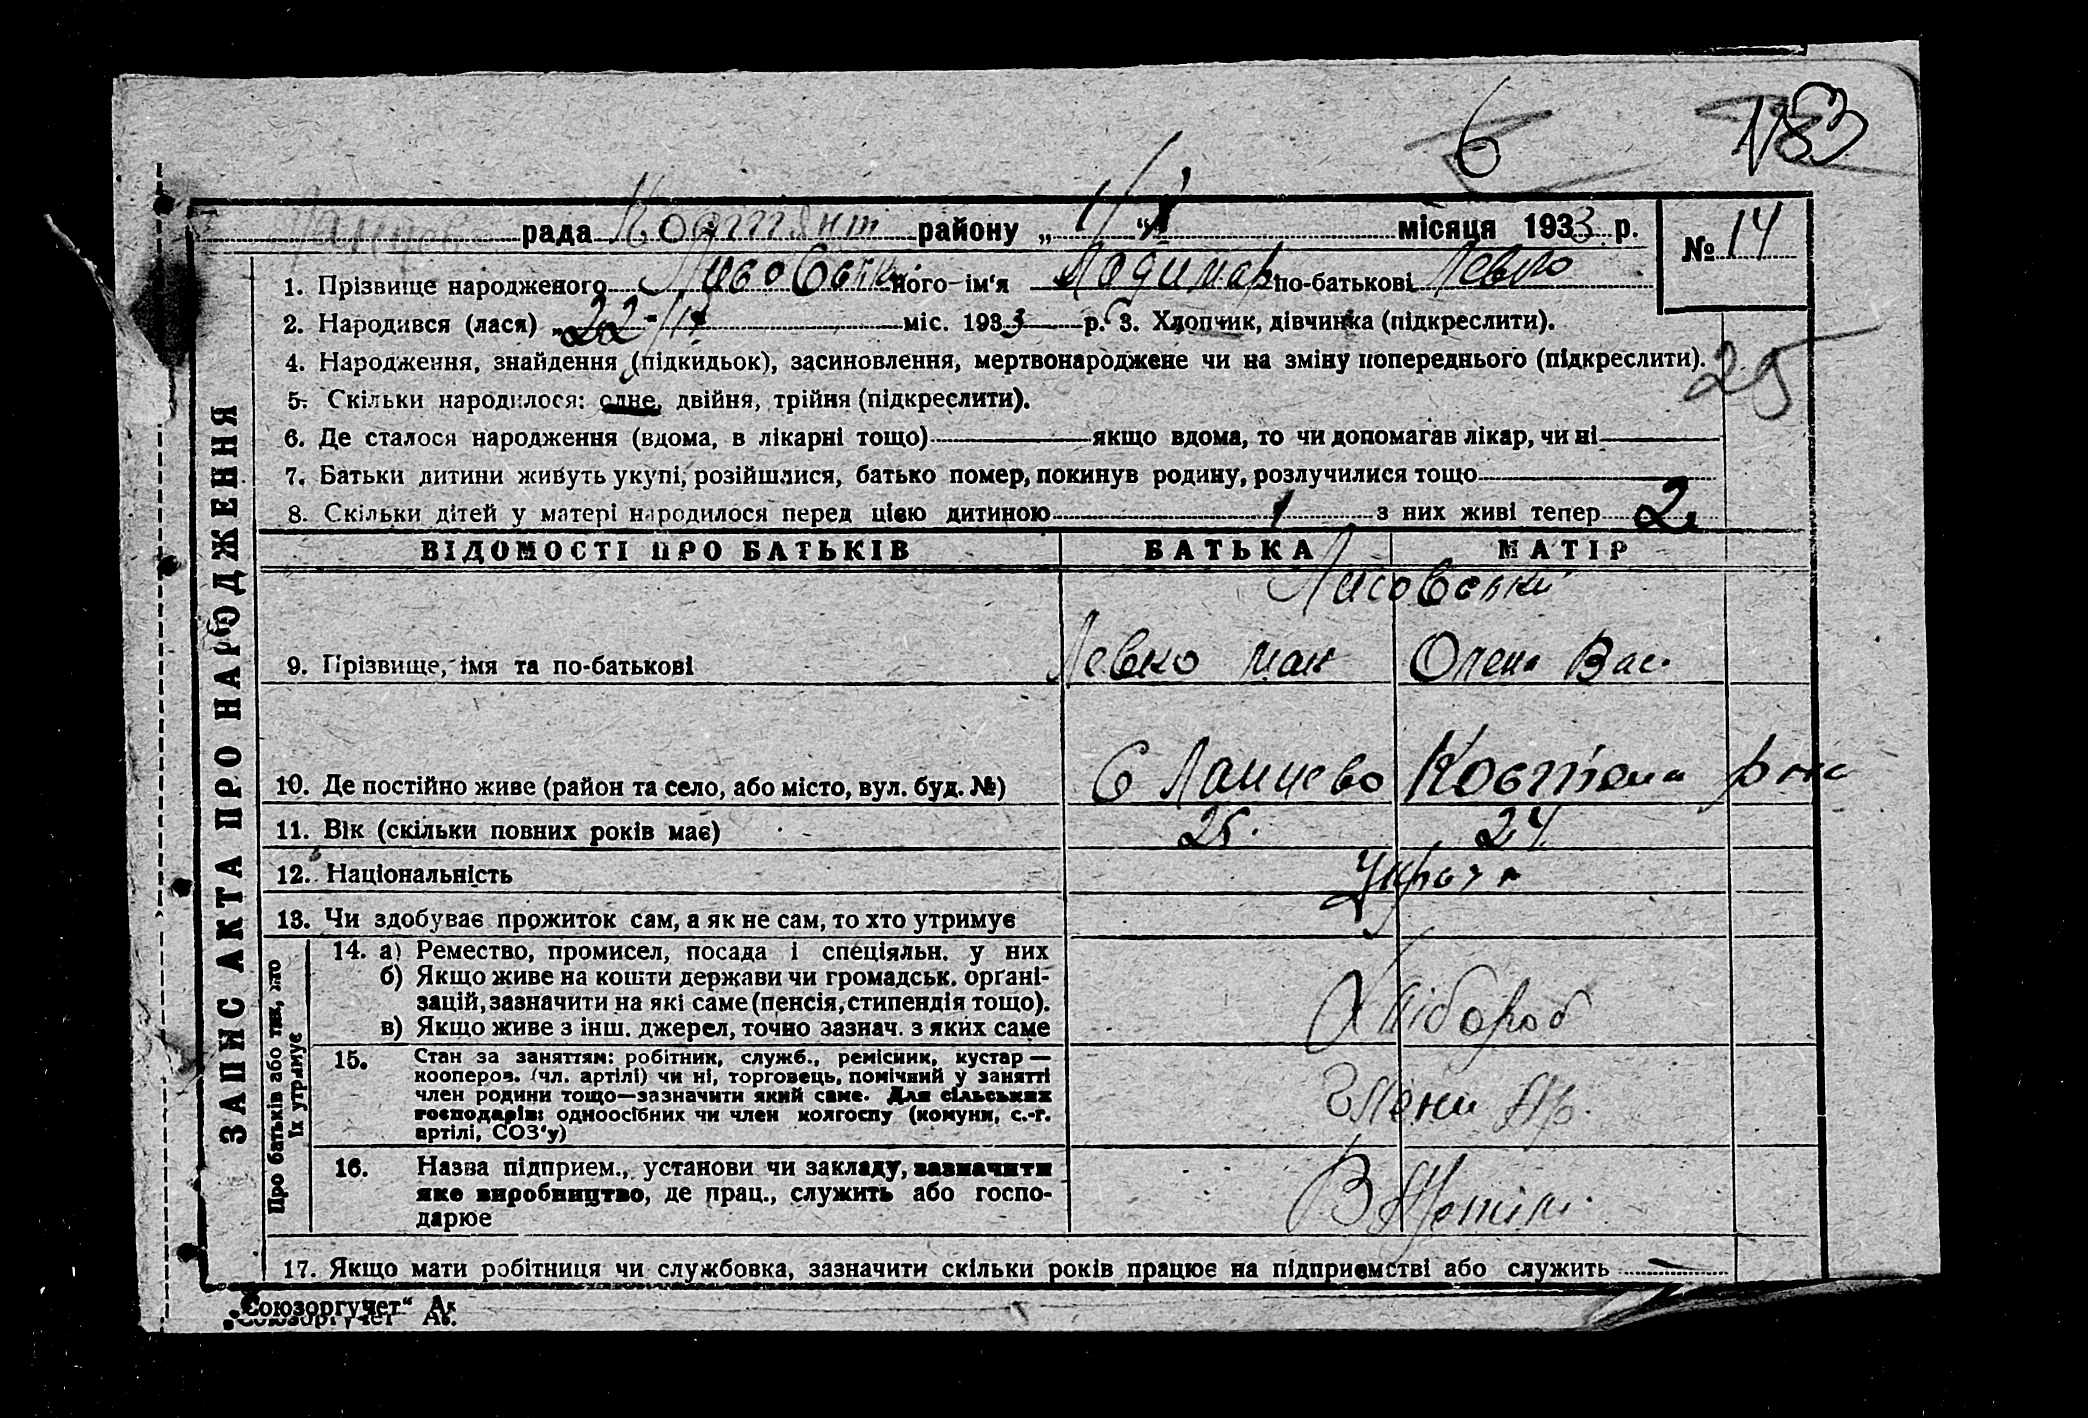 6 183
рада Костянт району „ 4/ “ місяця 1933 р. № 14
1. Прізвище народженого Лисовськ його ім'я Лодимар по-батькові Левко
2. Народився (лася) „22-/ міс. 1933 р. 3. Хлопчик, дівчинка (підкреслити).
4. Народження, знайдення (підкидьок), засиновлення, мертвонароджене чи на зміну попереднього (підкреслити).
25
5. Скільки народилося: одне, двійня, трійня (підкреслити).
6. Де сталося народження (вдома, в лікарні тощо) якщо вдома, то чи допомагав лікар, чи ні
7. Батьки дитини живуть укупі, розійшлися, батько помер, покинув родину, розлучилися тощо
8. Скільки дітей у матері народилося перед цією дитиною 1 з них живі тепер 2
ЗАПИС АКТА ПРО НАРОДЖЕННЯ
ВІДОМОСТІ ПРО БАТЬКІВ БАТЬКА МАТІР
Лисовські
9. Прізвище, імя та по-батькові Левко Олена Вас.
10. Де постійно живе (район та село, або місто, вул. буд. №) с Ланцево Костян р на
11. Вік (скільки повних років має) 25. 24
12. Національність Укр
13. Чи здобуває прожиток сам, а як не сам, то хто утримує
Про батьків або тих, хто їх утримує
14. а) Ремество, промисел, посада і спеціяльн. у них
б) Якщо живе на кошти держави чи громадськ. орґані-
зацій, зазначити на які саме (пенсія, стипендія тощо).
в) Якщо живе з інш. джерел, точно зазнач. з яких саме
Хлібороб
15. Стан за заняттям: робітник, служб., ремісник, кустар —
кооперов. (чл. артілі) чи ні, торговець, помічний у занятті
член родини тощо—зазначити який саме. Для сільських
господарів: одноосібних чи член колгоспу (комуни, с.-г.
артілі, СОЗ'у)
Члени Ар.
16. Назва підприєм., установи чи закладу, зазначити
яке виробництво, де прац., служить або госпо-
дарює
В Артілі
17. Якщо мати робітниця чи службовка, зазначити скільки років працює на підприємстві або служить
„Союзоргучет“